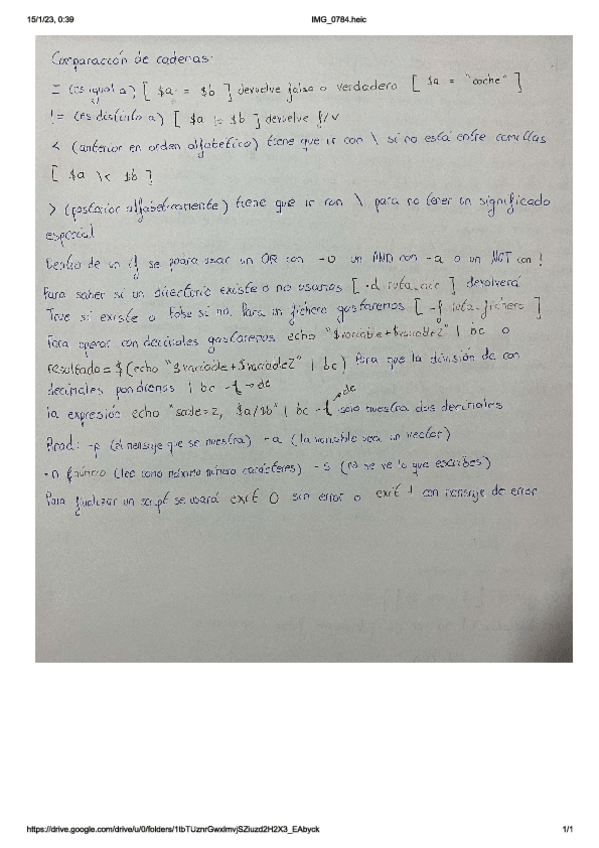 15/1/23, 0:39 IMG_0784.heic
Comparación de cadenas:
= (es igual a) [ $a = $b ] devuelve falso o verdadero [ $a = "coche" ]
!= (es distinto a) [ $a != $b ] devuelve f/v
< (anterior en orden alfabetico) tiene que ir con \ si no está entre comillas
[ $a \< $b ]
> (posterior alfabeticamente) tiene que ir con \ para no tener un significado
especial
Dentro de un if se podra usar un OR con -o un AND con -a o un NOT con !
Para saber si un directorio existe o no usamos [ -d ruta_ ] devolverá
True si existe o false si no. Para un fichero gastaremos [ -f ruta_fichero ]
Para operar con decimales gastaremos echo "$variable+$variable2" | bc o
resultado = $(echo "$variable+$variable2" | bc) Para que la división de con
decimales pondremos | bc -l → de
la expresión echo "scale=2, $a/$b" | bc -l → de solo muestra dos decimales
Read: -p (el mensaje que se muestra) -a (la variable sea un vector)
-n número (lee como máximo número carácteres) -s (no se ve lo que escribes)
Para finalizar un script se usará exit 0 sin error o exit 1 con mensaje de error
https://drive.google.com/drive/u/0/folders/1tbTUznrGwxlmvjSZiuzd2H2X3_EAbyck 1/1